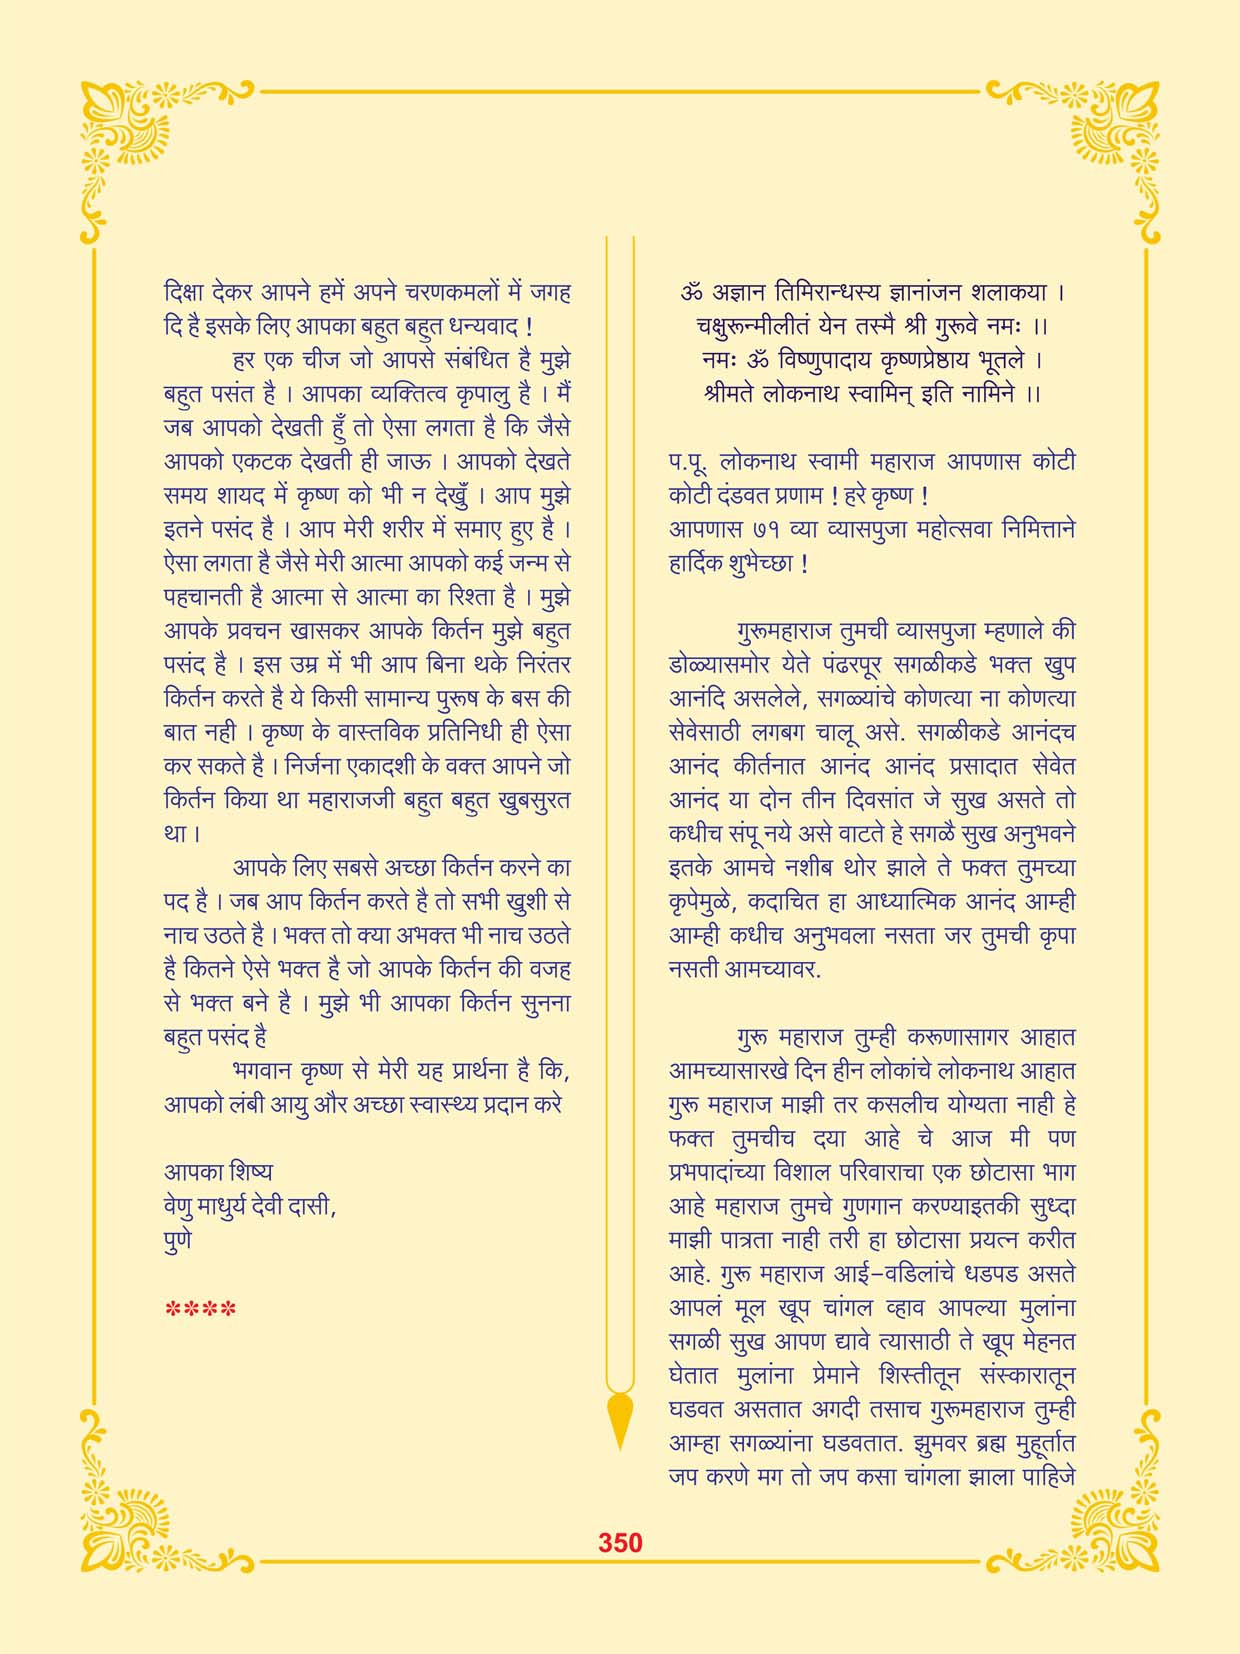 दिक्षा देकर आपने हमें अपने चरणकमलों में जगह
दि है इसके लिए आपका बहुत बहुत धन्यवाद !
हर एक चीज जो आपसे संबंधित है मुझे
बहुत पसंत है । आपका व्यक्तित्व कृपालु है । मैं
जब आपको देखती हुँ तो ऐसा लगता है कि जैसे
आपको एकटक देखती ही जाऊ । आपको देखते
समय शायद में कृष्ण को भी न देखुँ । आप मुझे
इतने पसंद है । आप मेरी शरीर में समाए हुए है ।
ऐसा लगता है जैसे मेरी आत्मा आपको कई जन्म से
पहचानती है आत्मा से आत्मा का रिश्ता है । मुझे
आपके प्रवचन खासकर आपके किर्तन मुझे बहुत
पसंद है । इस उम्र में भी आप बिना थके निरंतर
किर्तन करते है ये किसी सामान्य पुरूष के बस की
बात नही । कृष्ण के वास्तविक प्रतिनिधी ही ऐसा
कर सकते है । निर्जना एकादशी के वक्त आपने जो
किर्तन किया था महाराजजी बहुत बहुत खुबसुरत
था ।
आपके लिए सबसे अच्छा किर्तन करने का
पद है । जब आप किर्तन करते है तो सभी खुशी से
नाच उठते है । भक्त तो क्या अभक्त भी नाच उठते
है कितने ऐसे भक्त है जो आपके किर्तन की वजह
से भक्त बने है । मुझे भी आपका किर्तन सुनना
बहुत पसंद है
भगवान कृष्ण से मेरी यह प्रार्थना है कि,
आपको लंबी आयु और अच्छा स्वास्थ्य प्रदान करे
आपका शिष्य
वेणु माधुर्य देवी दासी,
पुणे
****
ॐ अज्ञान तिमिरान्धस्य ज्ञानांजन शलाकया ।
चक्षुरून्मीलीतं येन तस्मै श्री गुरूवे नमः ।।
नमः ॐ विष्णुपादाय कृष्णप्रेष्ठाय भूतले ।
श्रीमते लोकनाथ स्वामिन् इति नामिने ।।
प.पू. लोकनाथ स्वामी महाराज आपणास कोटी
कोटी दंडवत प्रणाम ! हरे कृष्ण !
आपणास ७१ व्या व्यासपुजा महोत्सवा निमित्ताने
हार्दिक शुभेच्छा !
गुरूमहाराज तुमची व्यासपुजा म्हणाले की
डोळ्यासमोर येते पंढरपूर सगळीकडे भक्त खुप
आनंदि असलेले, सगळ्यांचे कोणत्या ना कोणत्या
सेवेसाठी लगबग चालू असे. सगळीकडे आनंदच
आनंद कीर्तनात आनंद आनंद प्रसादात सेवेत
आनंद या दोन तीन दिवसांत जे सुख असते तो
कधीच संपू नये असे वाटते हे सगळै सुख अनुभवने
इतके आमचे नशीब थोर झाले ते फक्त तुमच्या
कृपेमुळे, कदाचित हा आध्यात्मिक आनंद आम्ही
आम्ही कधीच अनुभवला नसता जर तुमची कृपा
नसती आमच्यावर.
गुरू महाराज तुम्ही करूणासागर आहात
आमच्यासारखे दिन हीन लोकांचे लोकनाथ आहात
गुरू महाराज माझी तर कसलीच योग्यता नाही हे
फक्त तुमचीच दया आहे चे आज मी पण
प्रभपादांच्या विशाल परिवाराचा एक छोटासा भाग
आहे महाराज तुमचे गुणगान करण्याइतकी सुध्दा
माझी पात्रता नाही तरी हा छोटासा प्रयत्न करीत
आहे. गुरू महाराज आई–वडिलांचे धडपड असते
आपलं मूल खूप चांगल व्हाव आपल्या मुलांना
सगळी सुख आपण द्यावे त्यासाठी ते खूप मेहनत
घेतात मुलांना प्रेमाने शिस्तीतून संस्कारातून
घडवत असतात अगदी तसाच गुरूमहाराज तुम्ही
आम्हा सगळ्यांना घडवतात. झुमवर ब्रह्म मुहूर्तात
जप करणे मग तो जप कसा चांगला झाला पाहिजे
350